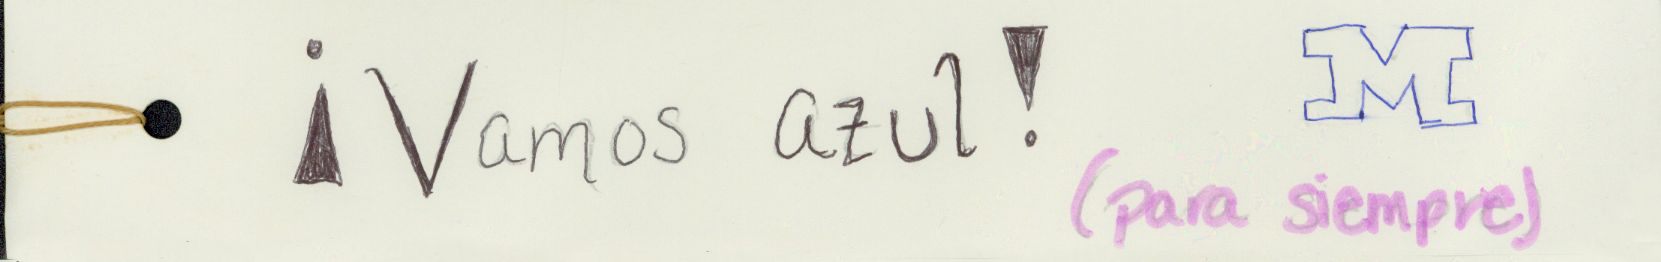 ¡Vamos azul!
M
(para siempre)